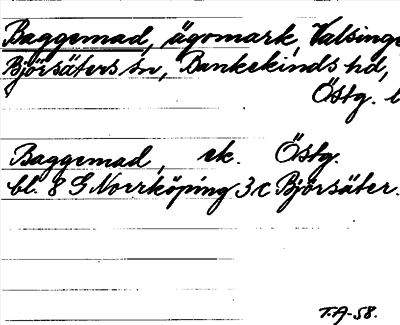 Baggemad, ägomark, Valsinge
Björsäters sn, Bankekinds hd,
Östg. l
Baggemad, ek. Östg.
bl. 8 G Norrköping 3c Björsäter.
T.A-58.